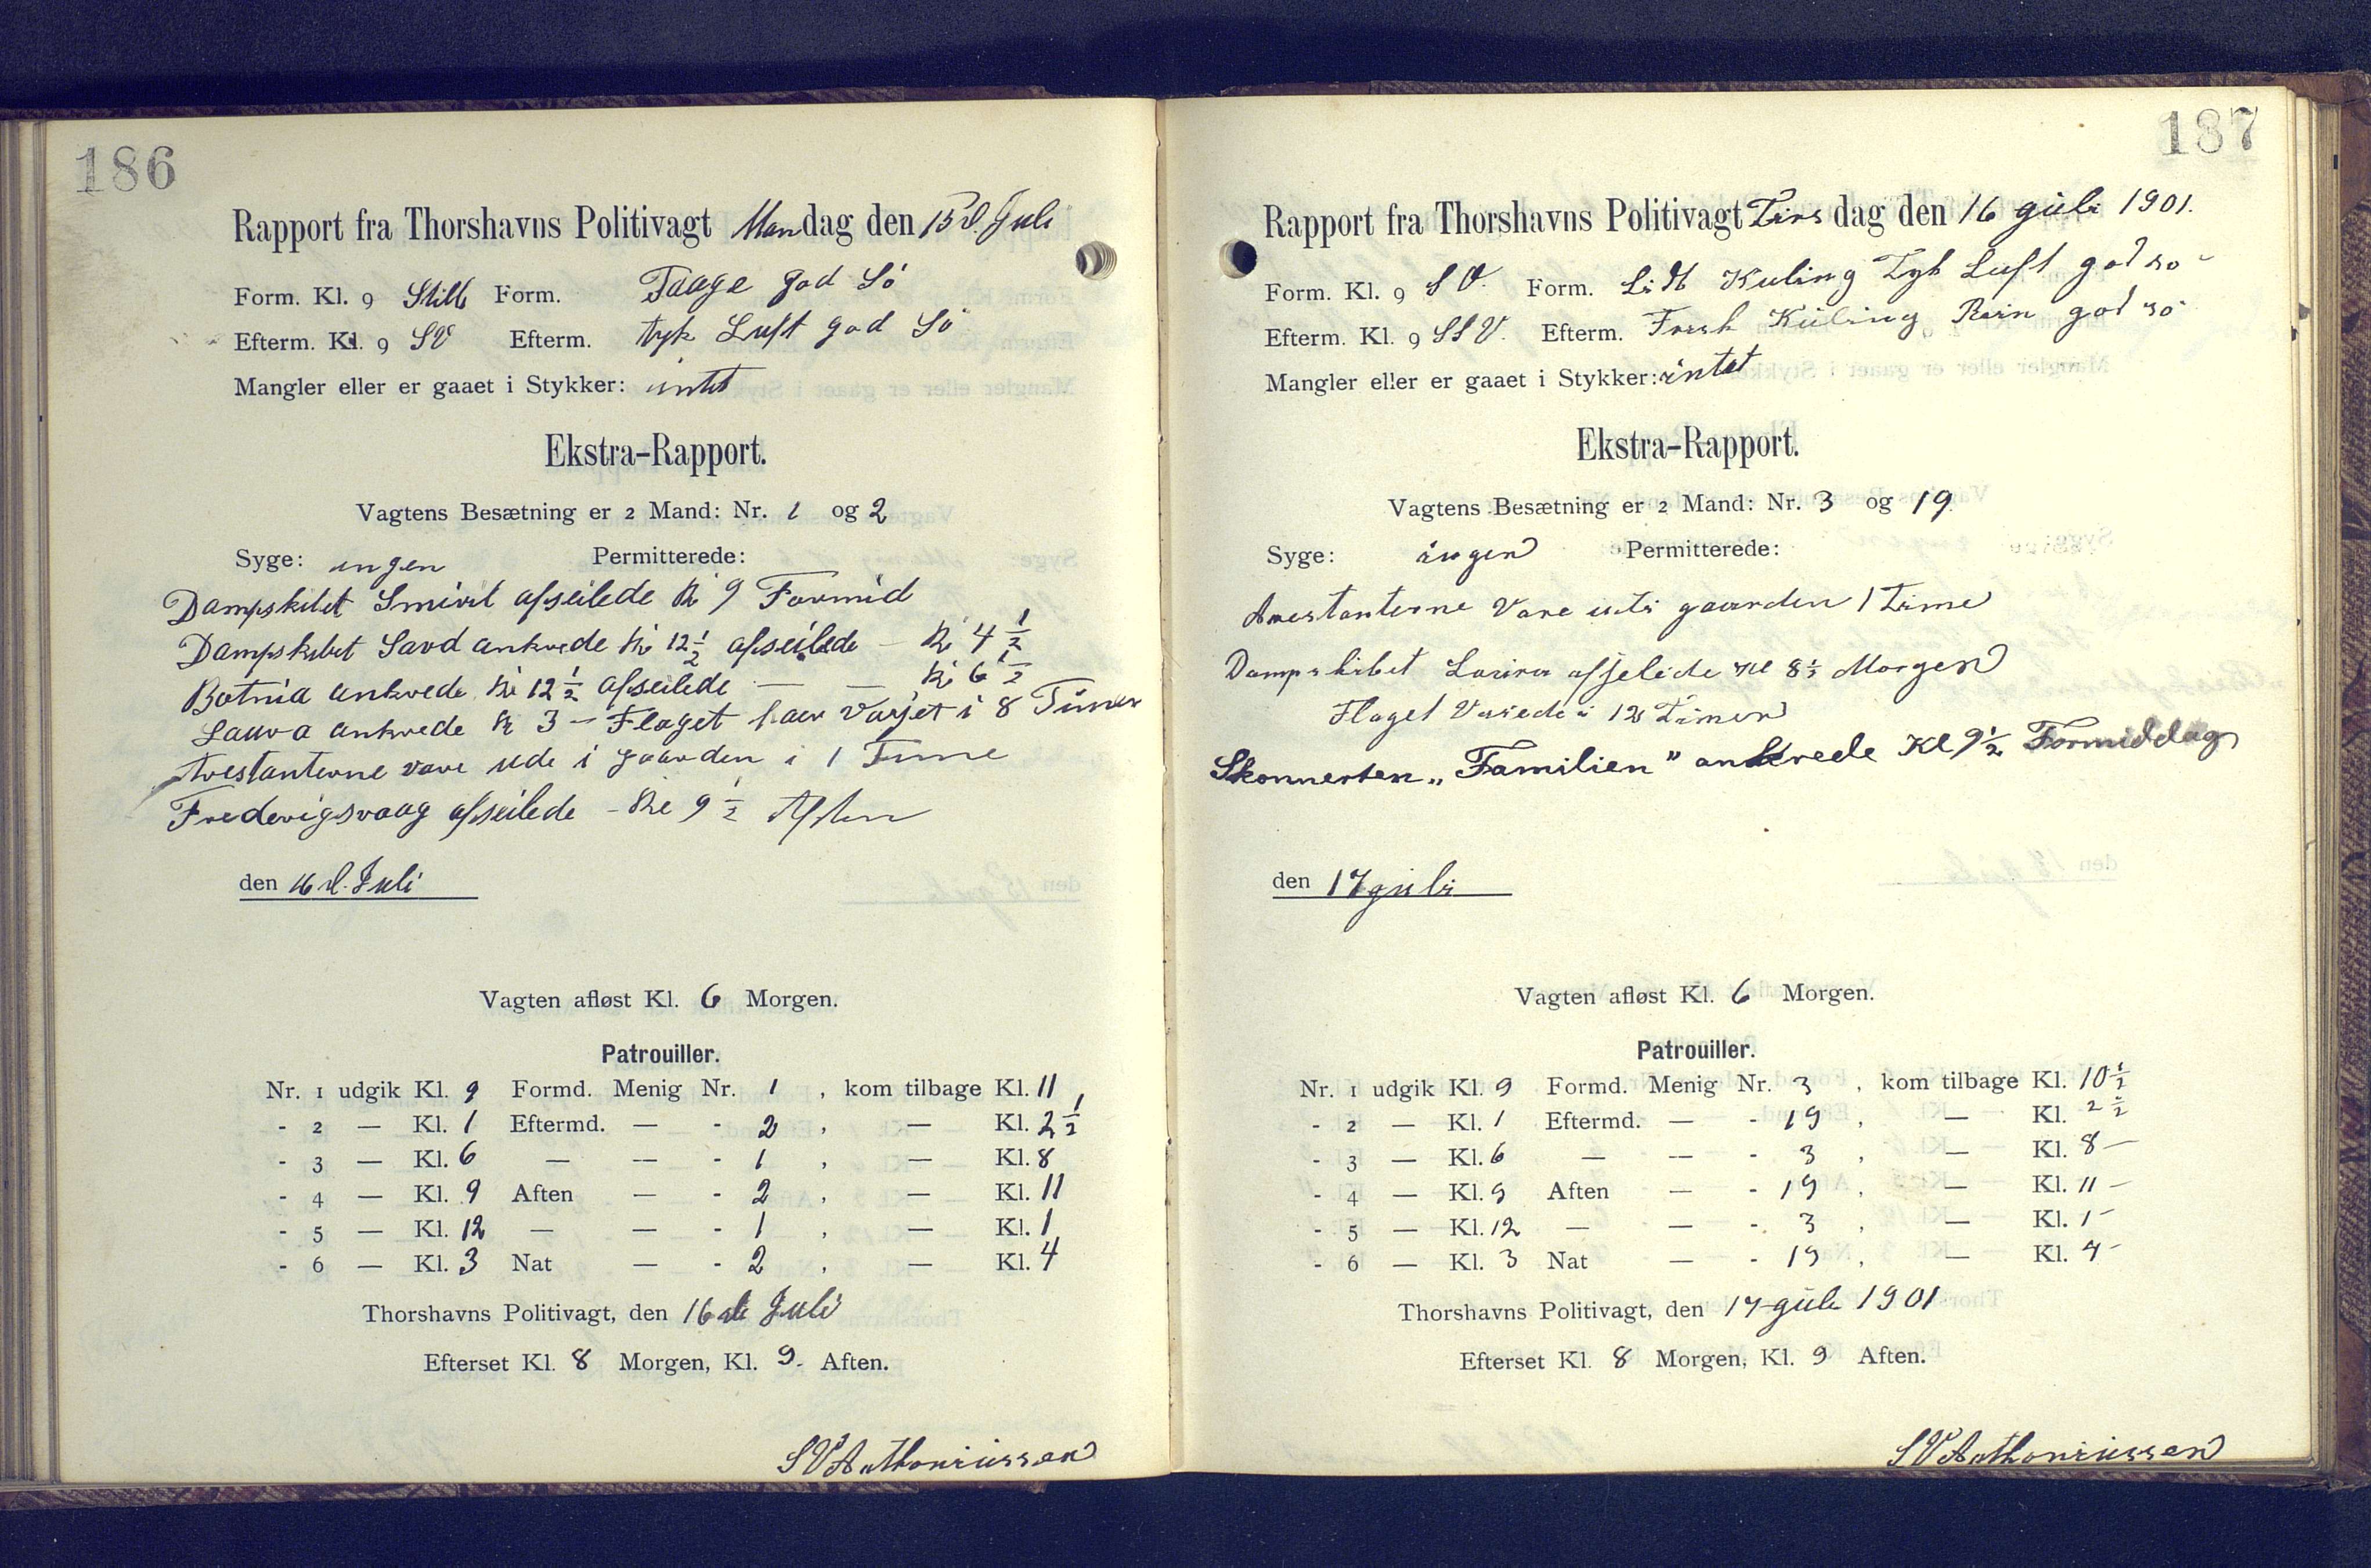 186
Rapport fra Thorshavns Politivagt Mandag den 15 d. Juli
Form. Kl. 9 Still Form. Taage god Sö
Efterm. Kl. 9 SV Efterm. tyk Luft god Sö
Mangler eller er gaaet i Stykker: intet
Ekstra-Rapport.
Vagtens Besætning er 2 Mand: Nr. 1 og 2
Syge: ingen Permitterede:
Dampskibet Smiril afseilede Kl 9 Formid
Dampskibet ankrede Kl 12 1/2 afseilede - Kl 4 1/2
Botnia ankrede Kl 12 1/2 afseilede — — Kl 6 1/2
Laura ankrede Kl 3 - Flaget haer Varjet i 8 Timer
Arestanterne vare ude i gaarden i 1 Time
Frederigsvaag afseilede - Kl 9 1/2 Aften
den 16 d. Juli
Vagten afløst Kl. 6 Morgen.
Patrouiller.
Nr. 1 udgik Kl. 9 Formd. Menig Nr. 1 , kom tilbage Kl. 11
- 2 — Kl. 1 Eftermd. — - 2 , — Kl. 2 1/2
- 3 — Kl. 6 — — - 1 , — Kl. 8
- 4 — Kl. 9 Aften — - 2 , — Kl. 11
- 5 — Kl. 12 — — - 1 , — Kl. 1
- 6 — Kl. 3 Nat — - 2 , — Kl. 4
Thorshavns Politivagt, den 16 de Juli
Efterset Kl. 8 Morgen, Kl. 9. Aften.
SV Anthoniussen
187
Rapport fra Thorshavns Politivagt Tirsdag den 16 guli 1901.
Form. Kl. 9 SV. Form. Lidt Kuling Tyk Luft god sö
Efterm. Kl. 9 SSV. Efterm. Fresk Kuling Rein god sö
Mangler eller er gaaet i Stykker: intet
Ekstra-Rapport.
Vagtens Besætning er 2 Mand: Nr. 3 og 19
Syge: ingen Permitterede:
Arestanterne Vare uti gaarden 1 Time
Dampskibet afselede Kl 8 1/2 Morgen
Flaget Varede i 12 Timer
Skonnerten „Familien" ankrede Kl 9 1/2 Formiddag
den 17 guli
Vagten afløst Kl. 6 Morgen.
Patrouiller.
Nr. 1 udgik Kl. 9 Formd. Menig Nr. 3 , kom tilbage Kl. 10 1/2
- 2 — Kl. 1 Eftermd. — - 19 , — Kl. 2 1/2
- 3 — Kl. 6 — — - 3 , — Kl. 8 -
- 4 — Kl. 9 Aften — - 19 , — Kl. 11 -
- 5 — Kl. 12 — — - 3 , — Kl. 1 -
- 6 — Kl. 3 Nat — - 19 , — Kl. 4 -
Thorshavns Politivagt, den 17 guli 1901
Efterset Kl. 8 Morgen, Kl. 9 Aften.
SV Anthoniussen